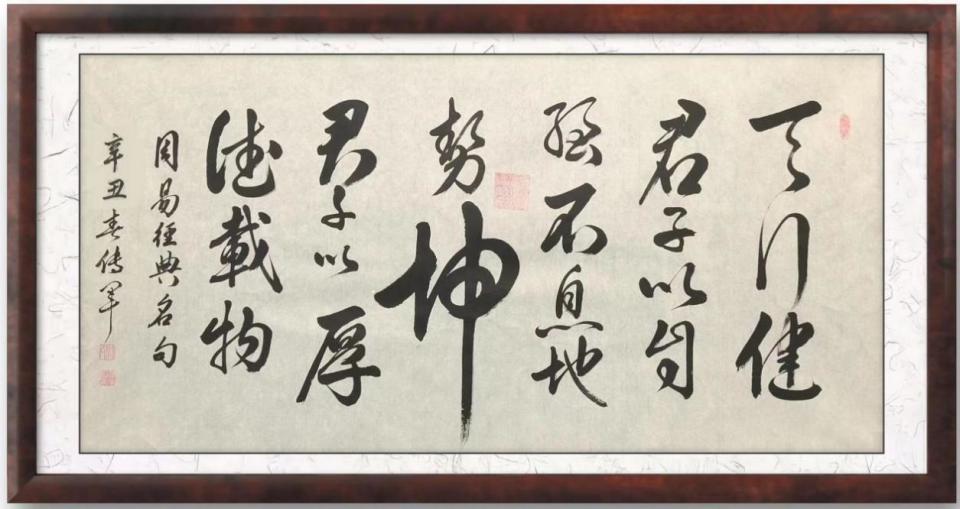 天行健
君子以自
强不息地
勢坤
君子以厚
德載物
周易經典名句
辛丑春传军